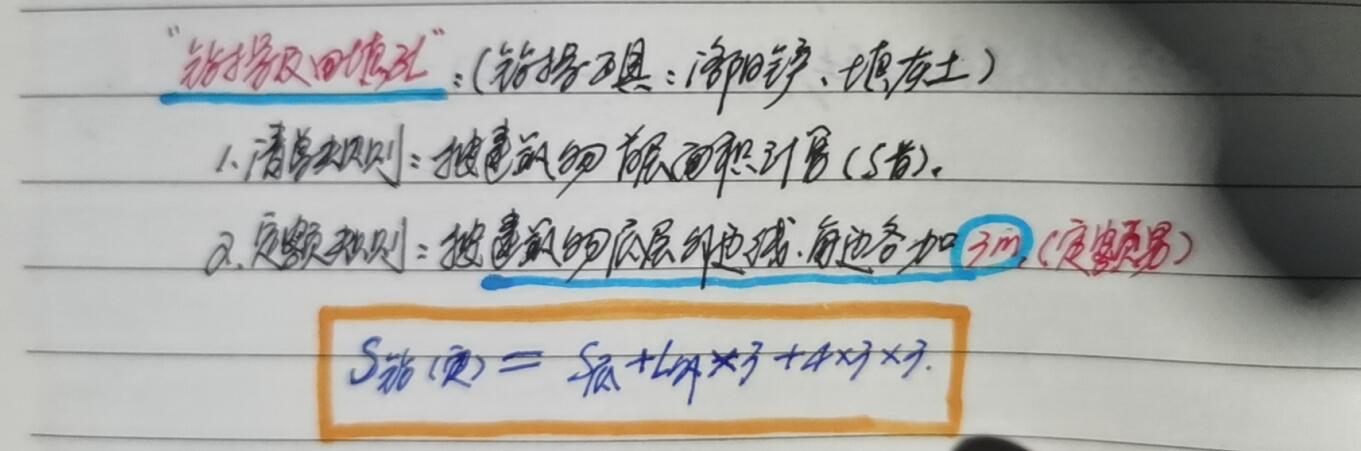 "钻探及回填孔":(钻探工具:洛阳铲、填灰土)
1.清单规则:按建筑物首层面积计算(S首)。
2.定额规则:按建筑物底层外边线.每边各加3m.(定额另)
S钻(定)= S底+L外×3+4×3×3.